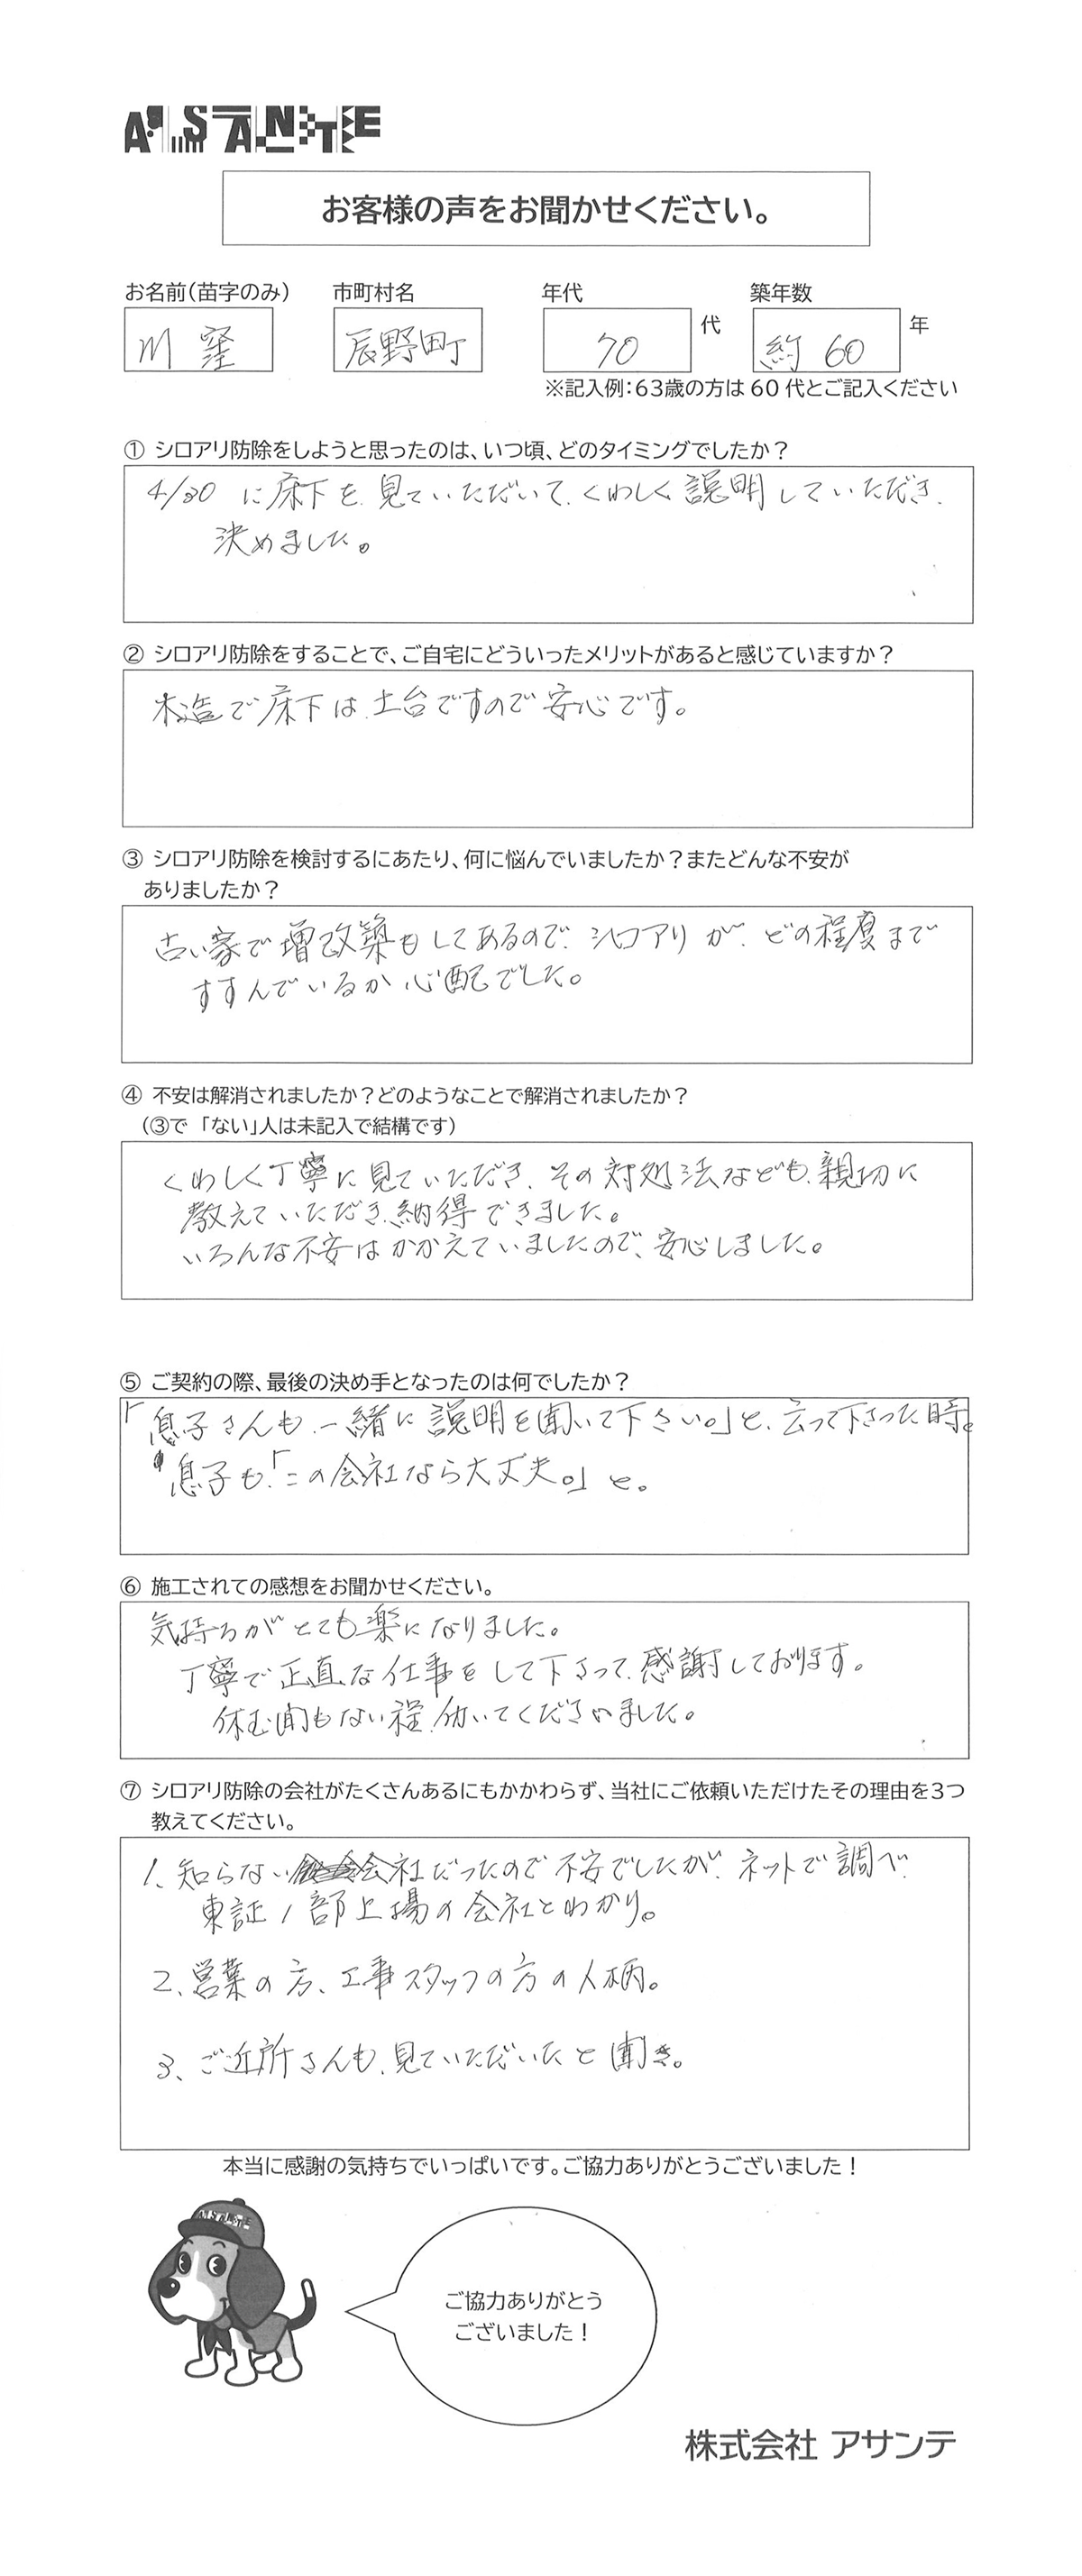 ASANTE
お客様の声をお聞かせください。
お名前（苗字のみ） 市町村名 年代 築年数
川窪 辰野町 70 代 約60 年
※記入例：63歳の方は60代とご記入ください
① シロアリ防除をしようと思ったのは、いつ頃、どのタイミングでしたか？
4/30 に床下を、見ていただいて、くわしく説明していただき、
決めました。
② シロアリ防除をすることで、ご自宅にどういったメリットがあると感じていますか？
木造で床下は、土台ですので安心です。
③ シロアリ防除を検討するにあたり、何に悩んでいましたか？またどんな不安が
ありましたか？
古い家で増改築もしてあるので、シロアリが、どの程度まで
すすんでいるか心配でした。
④ 不安は解消されましたか？どのようなことで解消されましたか？
（③で「ない」人は未記入で結構です）
くわしく丁寧に見ていただき、その対処法なども、親切に
教えていただき、納得できました。
いろんな不安はかかえていましたので、安心しました。
⑤ ご契約の際、最後の決め手となったのは何でしたか？
「息子さんも、一緒に説明を聞いて下さい。」と、云って下さった時。
息子も、「この会社なら大丈夫。」と。
⑥ 施工されての感想をお聞かせください。
気持ちがとても楽になりました。
丁寧で正直な仕事をして下さって、感謝しております。
休む間もない程、働いてくださいました。
⑦ シロアリ防除の会社がたくさんあるにもかかわらず、当社にご依頼いただけたその理由を3つ
教えてください。
1、知らない会社だったので不安でしたが、ネットで調べ、
東証1部上場の会社とわかり。
2、営業の方、工事スタッフの方の人柄。
3、ご近所さんも、見ていただいたと聞き。
本当に感謝の気持ちでいっぱいです。ご協力ありがとうございました！
ASANTE
ご協力ありがとう
ございました！
株式会社 アサンテ